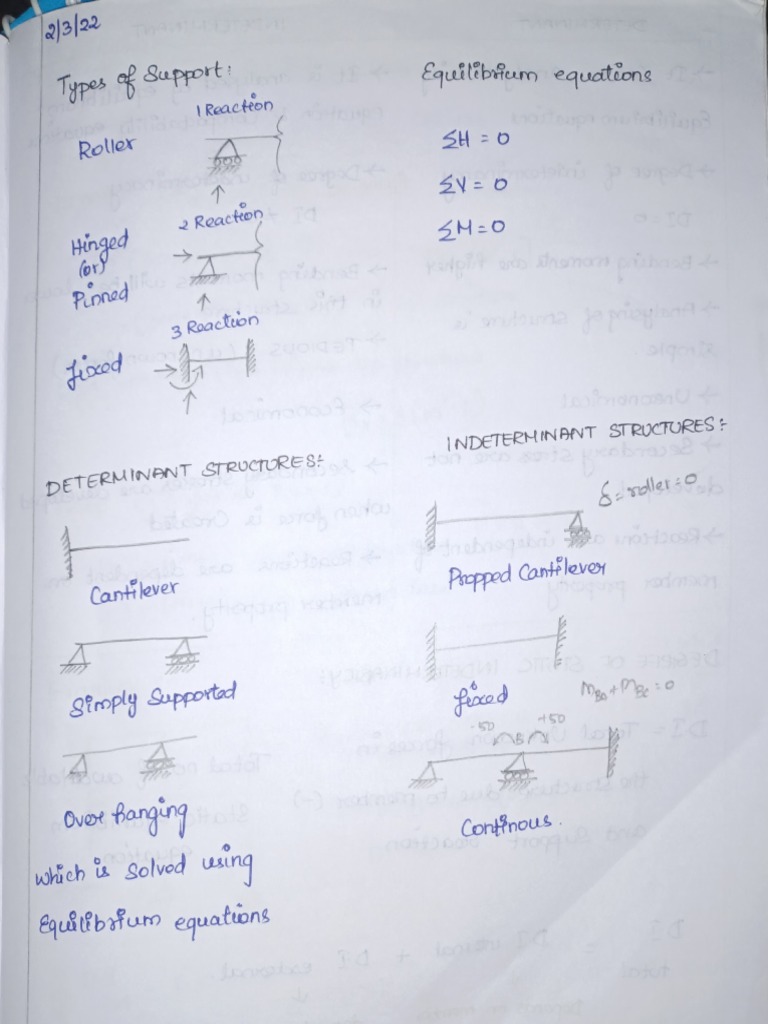 2/3/22
Types of Support:
Equilibrium equations
1 Reaction
Roller
ΣH = 0
ΣV = 0
ΣM = 0
2 Reaction
Hinged
(or)
Pinned
3 Reaction
fixed
DETERMINANT STRUCTURES:-
INDETERMINANT STRUCTURES:-
δ = roller = 0
Cantilever
Propped Cantilever
Simply Supported
fixed
-50 +50
B
Over hanging
Continous.
which is solved using
Equilibrium equations